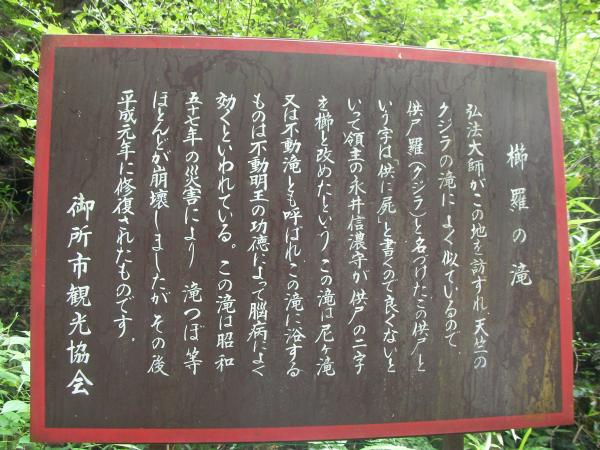 櫛羅の滝
弘法大師がこの地を訪ずれ、天竺の
クジラの滝によく似ているので、
供尸羅(クジラ)と名づけたこの供尸と
いう字は「供に屍」と書くので良くないと
いって領主の永井信濃守が供尸の二字
を櫛と改めたという。この滝は尼ヶ滝
又は不動滝とも呼ばれこの滝に浴する
ものは不動明王の功徳によって脳病によく
効くといわれている。この滝は昭和
五十七年の災害により滝つぼ等
ほとんどが崩壊しましたがその後
平成元年に修復されたものです。
御所市観光協会